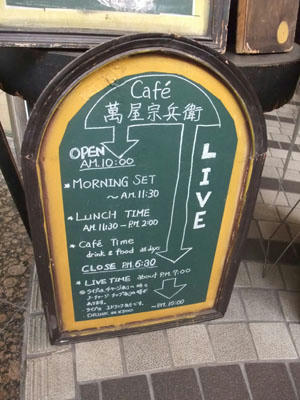 Café
萬屋宗兵衛
OPEN
A.M. 10:00
LIVE
* MORNING SET
~ AM. 11:30
* LUNCH TIME
A.M. 11:30 ~ P.M. 2:00
* Café Time
drink & food
CLOSE P.M. 6:30
* LIVE TIME about P.M. 7:00
~ P.M. 10:00
あります。